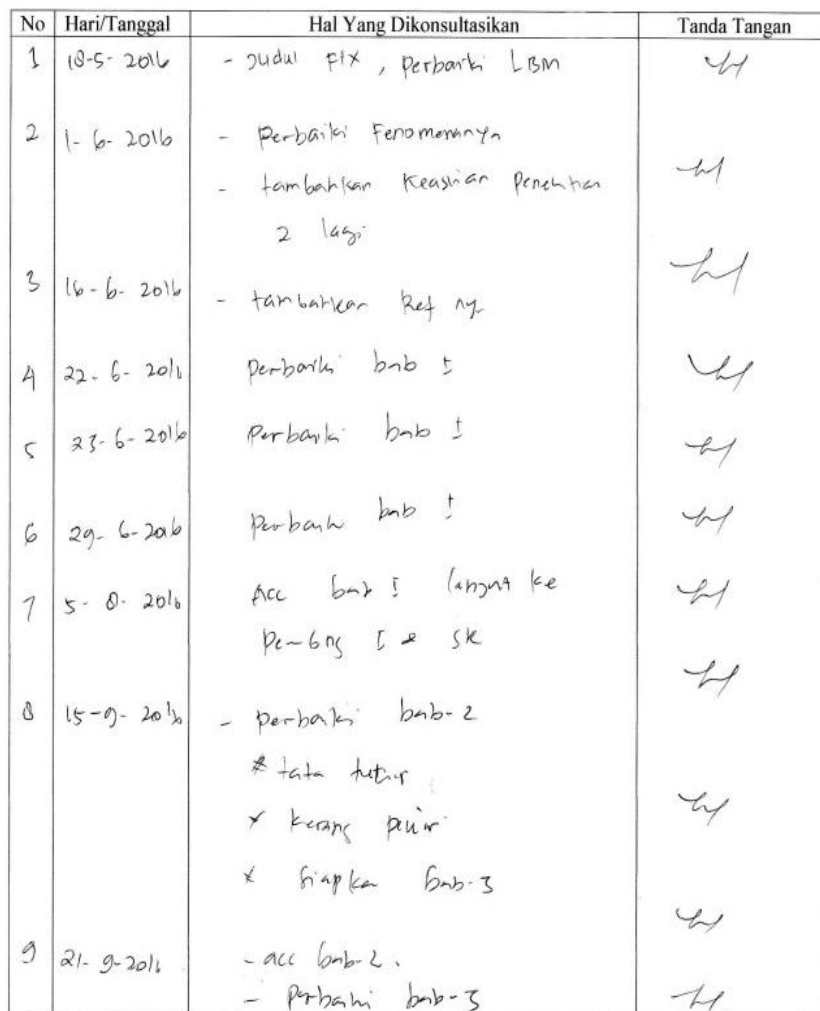 No Hari/Tanggal Hal Yang Dikonsultasikan Tanda Tangan
1 18-5-2016 - Judul FIX, Perbaiki LBM
2 1-6-2016 - Perbaiki Fenomenanya
- tambahkan Keaslian Penelitian
2 lagi
3 16-6-2016 - tambahkan Ref ny
4 22-6-2016 Perbaiki bab I
5 23-6-2016 Perbaiki bab I
6 29-6-2016 Perbaiki bab I
7 5-8-2016 Acc bab I langsung ke
Pembimbing I & SK
8 15-9-2016 - perbaiki bab-2
* tata
* kerang pikir
* siapkan bab-3
9 21-9-2016 - acc bab-2.
- Perbaiki bab-3